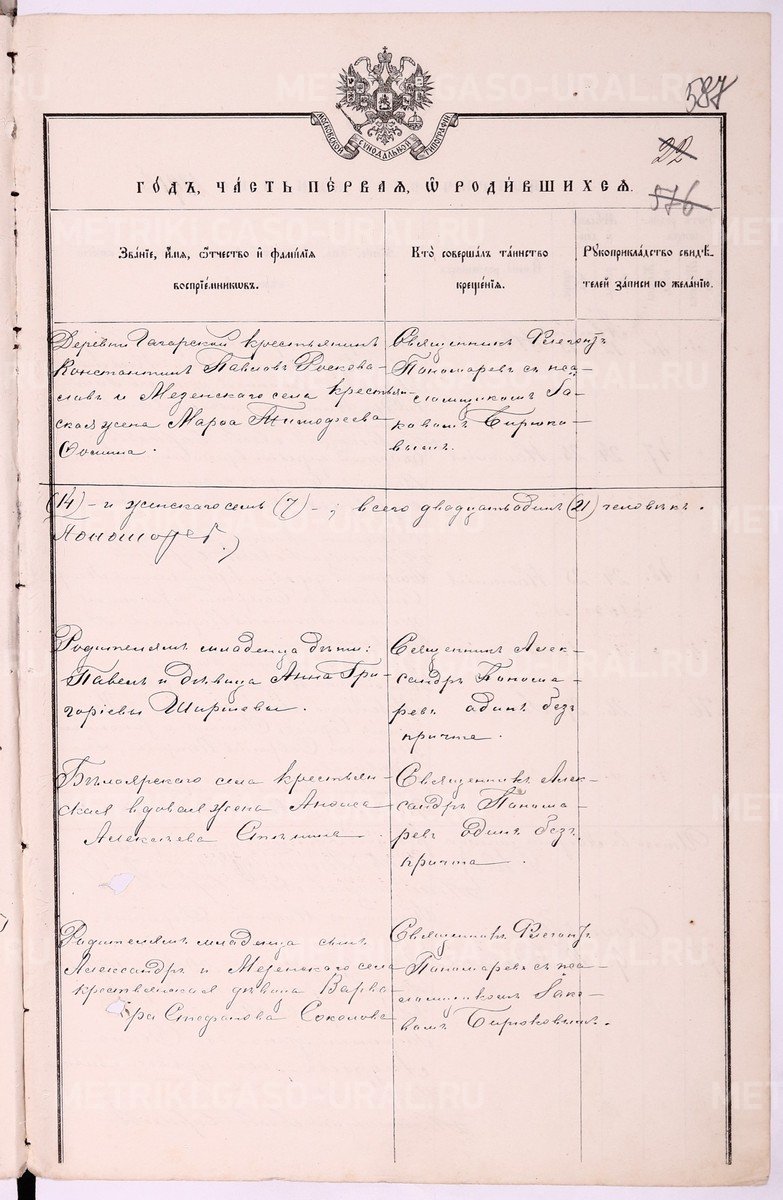 587
МОСКОВСКОЙ СѴНОДАЛЬНОЙ ТИПОГРАФІИ
22
576
ГО́ДЪ, ЧА́СТЬ ПЕ́РВАЯ, Ѽ РОДИ́ВШИХСѦ.
Зва́нїе, и҆́мѧ, ѻ҆́тчество и҆ фами́лїѧ
воспрїе́мникѡвъ.
Кто̀ соверша́лъ та́инство
креще́нїѧ.
Рꙋкоприкла́дство свидѣ́-
телей за́писи по жела́нїю.
Деревни Гагарской крестьянинъ
Константинъ Павловъ
и Мезенскаго села крестьян-
ская жена Марѳа Тимоѳеева
Ѳомина.
Священникъ Флегонтъ
Пономаревъ съ пса-
ломщикомъ Іа-
ковомъ Бирюко-
вымъ.
(14) - и женскаго семь (7) - ; всего двадцать одинъ (21) человѣкъ.
Пономарев.)
Родителямъ младенца дѣти:
Павелъ и дѣвица Анна Гри-
горіевы Ширшевы.
Священникъ Алек-
сандръ Понома-
ревъ одинъ безъ
причта.
Бѣлоярскаго села крестьян-
ская вдовая жена Анѳиса
Алексѣева
Священникъ Алек-
сандръ Понома-
ревъ одинъ безъ
причта.
Родителямъ младенца сынъ
Александръ и Мезенскаго села
крестьянская дѣвица Варва-
ра Стефанова Соколова
Священникъ Флегонтъ
Пономаревъ съ пса-
ломщикомъ Іако-
вомъ Бирюковымъ.
METRIKI.GASO-URAL.RU